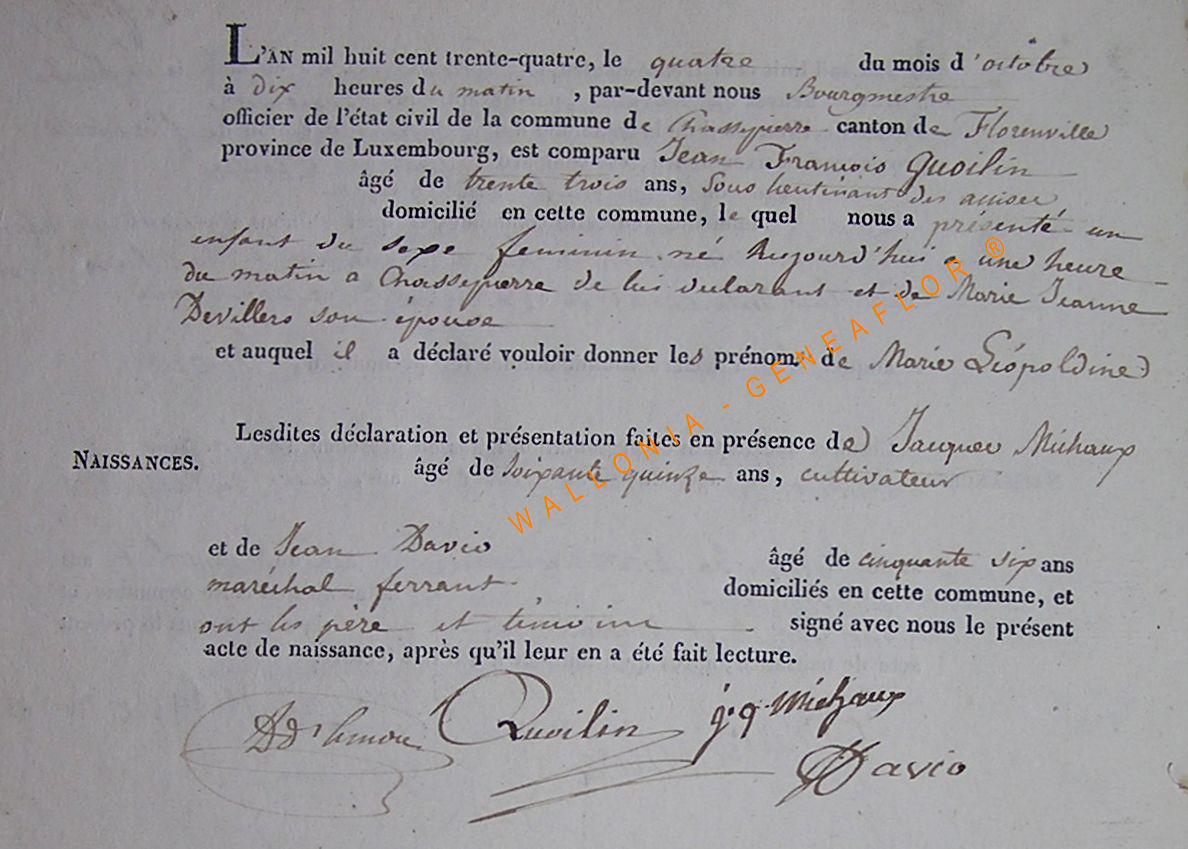 L'AN mil huit cent trente-quatre, le quatre du mois d'octobre
à dix heures du matin, par-devant nous Bourgmestre
officier de l'état civil de la commune de Chassepierre canton de Florenville
province de Luxembourg, est comparu Jean François Quoilin
âgé de trente trois ans, Sous lieutenant des
domicilié en cette commune, le quel nous a présenté un
enfant du sexe feminin né aujourd'hui a une heure
du matin a Chassepierre de lui declarant et de Marie Jeanne
Devillers son épouse
et auquel il a déclaré vouloir donner les prénoms de Marie Léopoldine
Lesdites déclaration et présentation faites en présence de Jacques Michaux
NAISSANCES.
âgé de soixante quinze ans, cultivateur
et de Jean Davio âgé de cinquante six ans
maréchal ferrant domiciliés en cette commune, et
ont les père et témoins signé avec nous le présent
acte de naissance, après qu'il leur en a été fait lecture.
Quoilin j. q. Michaux
Davio
WALLONIA - GENEAFLOR ®